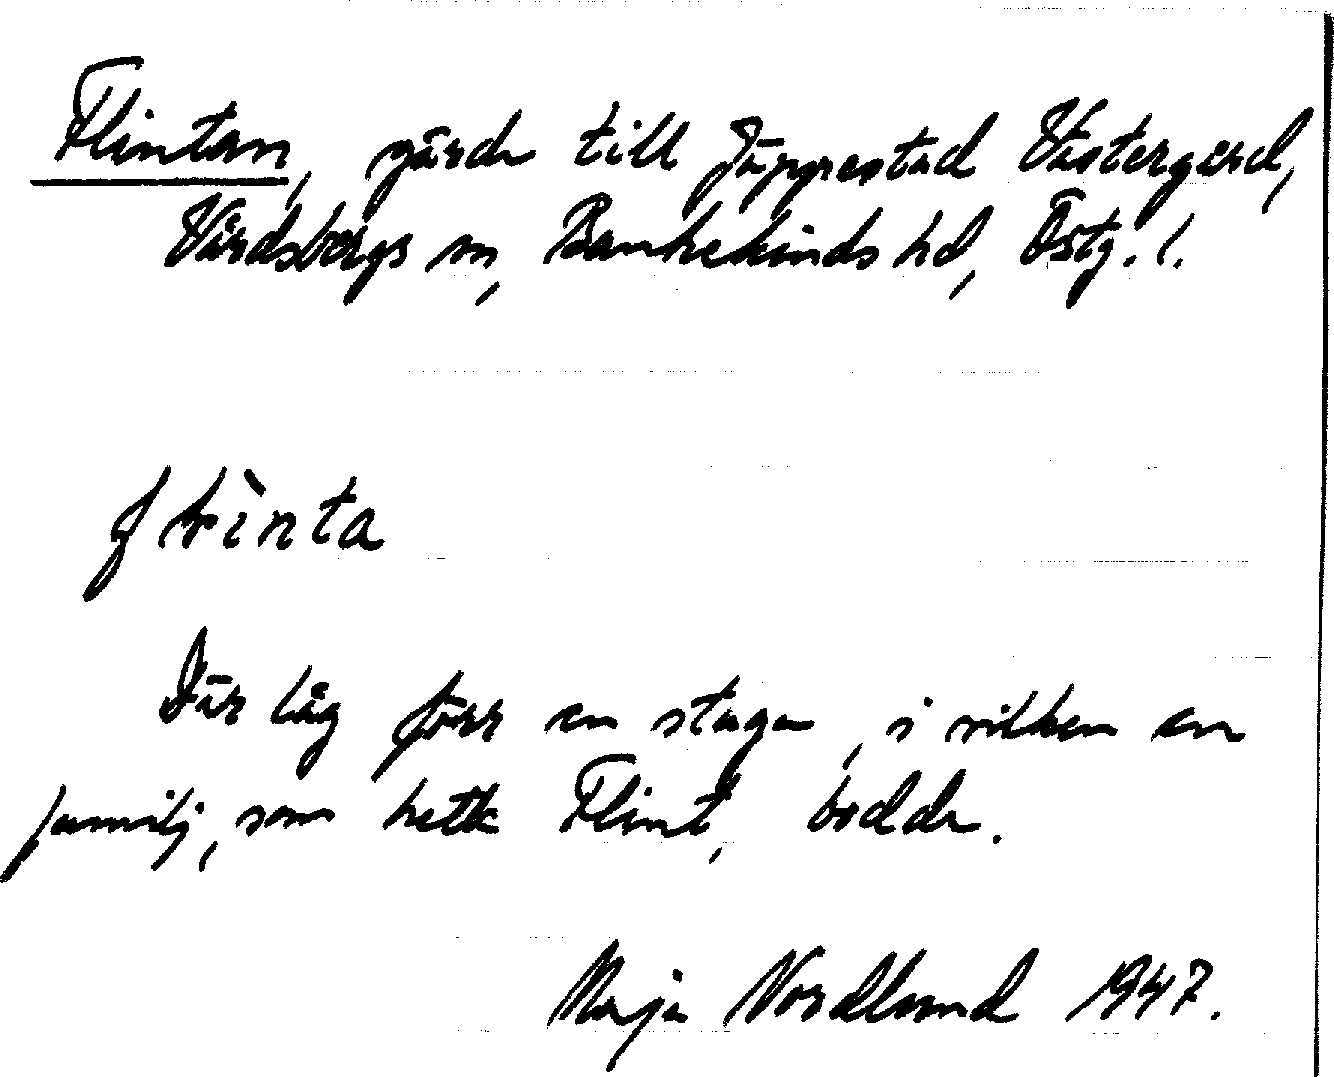 Flintan, gärde till Jäppestad Västergård,
Vårdsbergs sn, Bankekinds hd, Östg. l.
flinta
Där låg förr en stuga, i vilken en
familj, som hette Flint, bodde.
Maja Nordlund 1947.